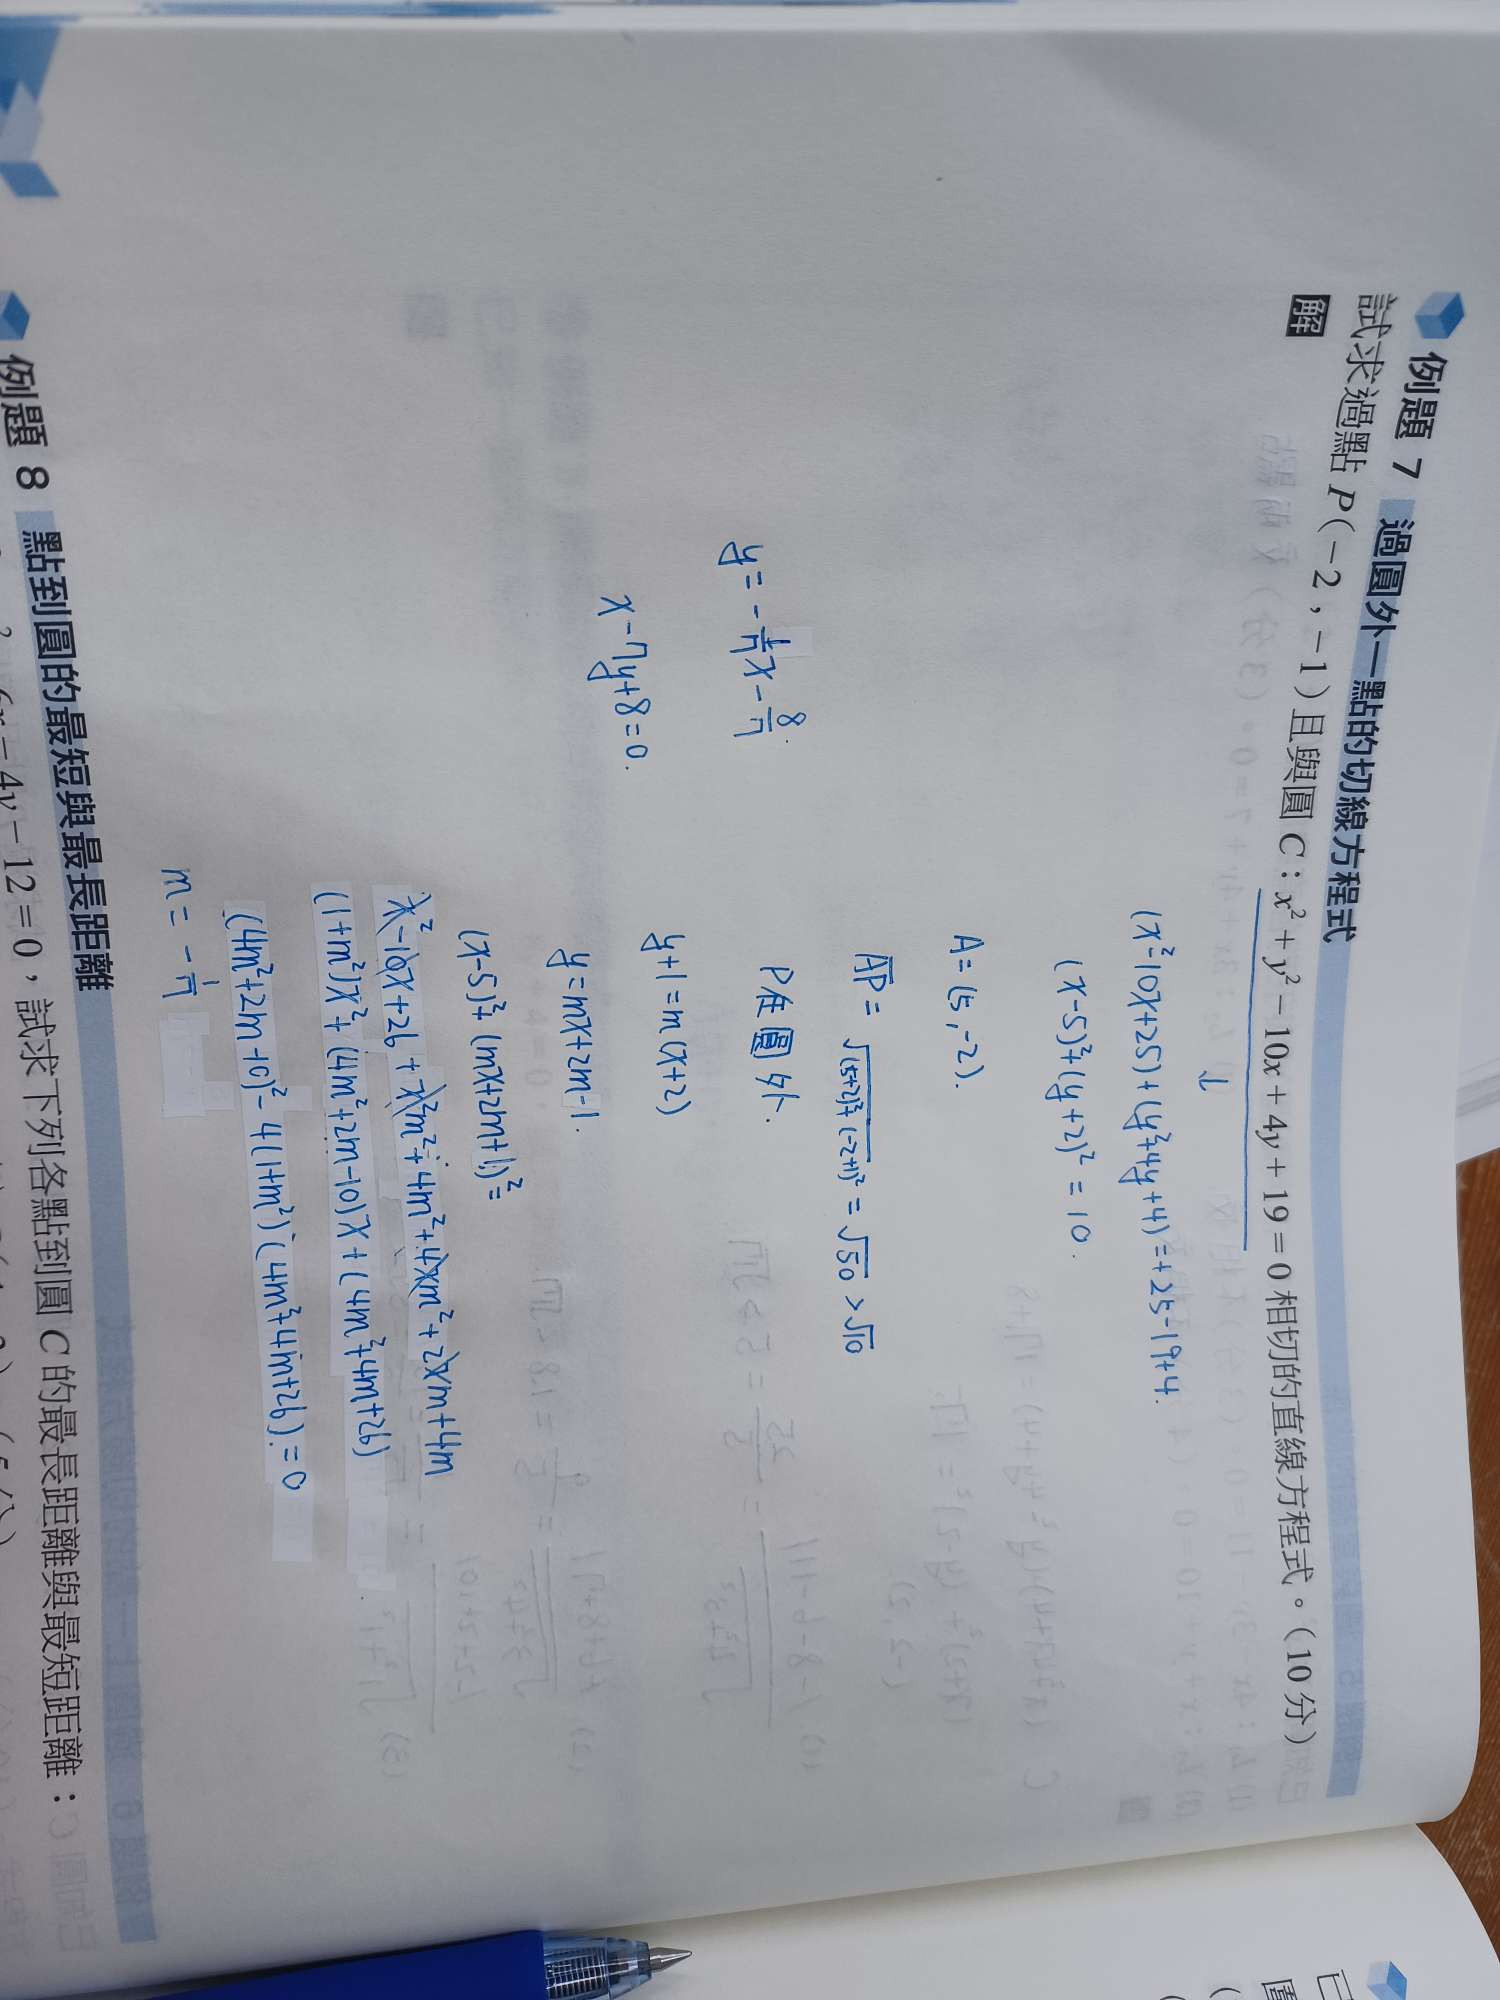 例題 7 過圓外一點的切線方程式
試求過點 P(-2,-1) 且與圓 C:x²+y²-10x+4y+19=0 相切的直線方程式。(10分)
解
(x²-10x+25)+(y²+4y+4)=+25-19+4
(x-5)²+(y+2)²=10.
A=(5,-2).
AP=√(5+2)²+(-2+1)²=√50>√10
P在圓外.
y+1=m(x+2)
y=mx+2m-1.
y=-1/7x-8/7.
x-7y+8=0.
(x-5)²+(mx+2m+1)²=
(1+m²)x²+(4m²+2m-10)x+(4m²+4m+26)
(4m²+2m+10)²-4(1+m²)(4m²+4m+26)=0
m=-1/7
例題 8 點到圓的最短與最長距離
-6x-4y-12=0,試求下列各點到圓 C 的最長距離與最短距離: